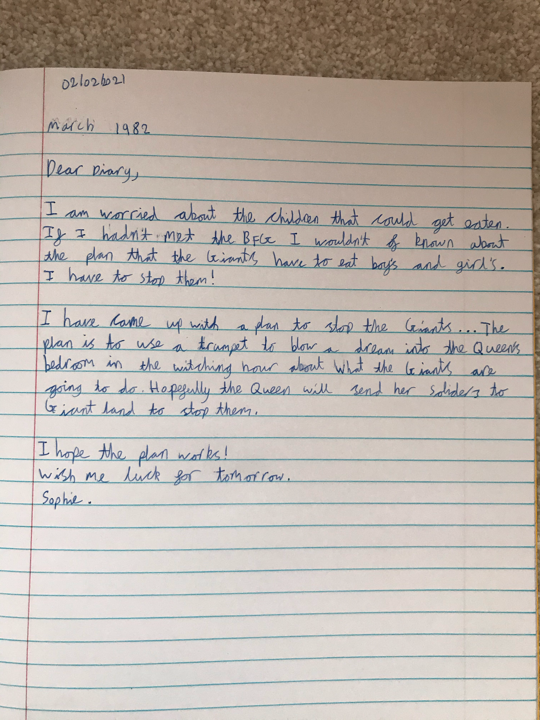 02/02/2021
March 1982
Dear Diary,
I am worried about the children that could get eaten.
If I hadn't met the BFG I wouldn't of known about
the plan that the Giants have to eat boys and girl's.
I have to stop them!
I have came up with a plan to stop the Giants...The
plan is to use a trumpet to blow a dream into the Queen's
bedroom in the witching hour about what the Giants are
going to do. Hopefully the Queen will send her soliders to
Giant land to stop them.
I hope the plan works!
Wish me luck for tomorrow.
Sophie.